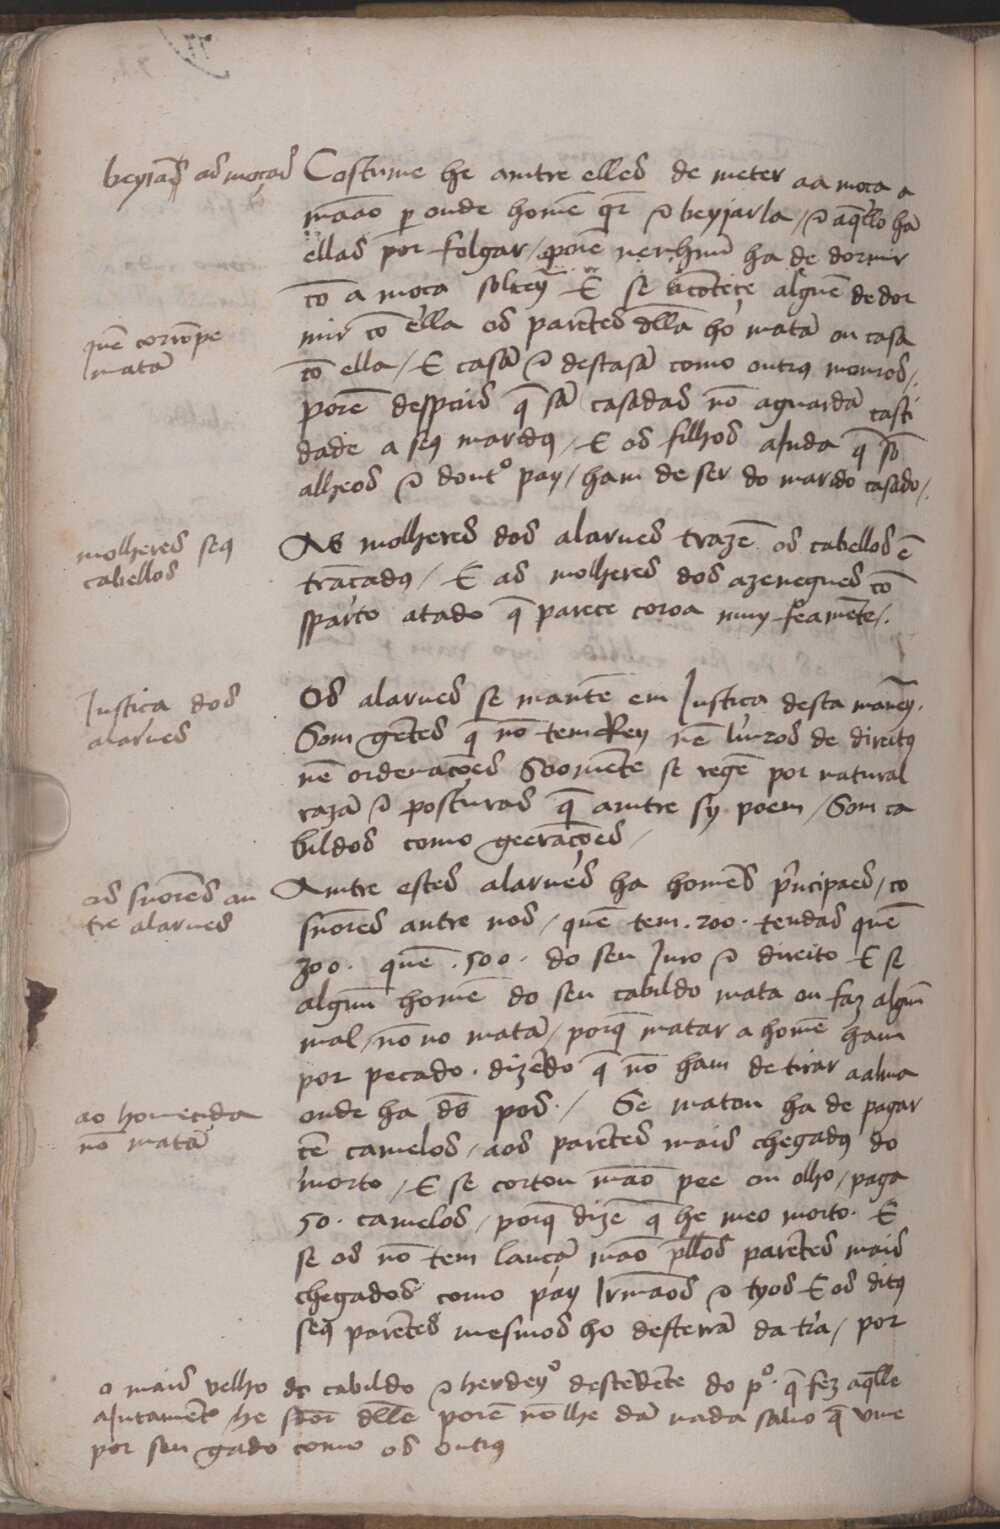 beyjaḿ as moças
Costume he antre elles de meter aa moça a
maão p onde homẽ qr̃ ⁊ beyjarla / ⁊ aq̃llo hã
ellas por folgar / porẽ nenhuũ ha de dormir
cõ a moça solteyrª E se acontece alguẽ de dor
mir cõ ella os parẽtes dllã ho matã ou casa
cõ ella / E casã ⁊ descasã como outrꝯ mouros /.
porẽ despois q̃ sã casadas nõ aguardã casti
dade a seꝯ maridꝯ / E os filhos aJnda q̃ sõ
alheos ⁊ doutº pay / ham de ser do marido casado /.
quẽ corrõpe
matã
As molheres dos alarues trazẽ os cabellos ẽ
trãçadꝯ / E as molheres dos azenegues cõ
sparto atado q̃ parece coroa muy feamẽte /.
molheres seꝯ
cabellos
Os alarues se mantẽ em Justiça desta maneyª.
Som gẽtes q̃ nõ tem Rey nẽ liuros de direitꝯ
nẽ ordenações Soomẽte se regẽ por natural
razã ⁊ posturas q̃ antre sy poem / Som ca
bildos como geerações /
Justiça dos
alarues
Antre estes alarues ha homẽs prĩcipaes / co
sñores antre nos / quẽ tem .200. tendas quẽ
300. quẽ .500. do seu Juro ⁊ direito E se
alguũ homẽ do seu cabildo mata ou faz alguũ
mal / nõ no matã / porq̃ matar a homẽ ham
por pecado. dizẽdo q̃ nõ ham de tirar aalma
onde ha ds̃ pos. / Se matou ha de pagar
cẽ camelos / aos parẽtes mais chegadꝯ do
morto / E se cortou mão pee ou olho / paga
50. camelos / porq̃ dizẽ q̃ he meo morto. E
se os nõ tem lançã mão pllos parẽtes mais
chegados como pay Irmãos ⁊ tyos E os ditꝯ
seꝯ parẽtes mesmos ho desterrã da tr̃a / por
os sñores an
tre alarues
ao homecida
nõ matã
o mais velho do cabildo ⁊ herdeyº descẽdẽte do pº. q̃ fez aq̃lle
aJutamẽtº he sñor dlle porẽ nõ lhe dã nada saluo q̃ viue
por seu gado como os outrꝯ